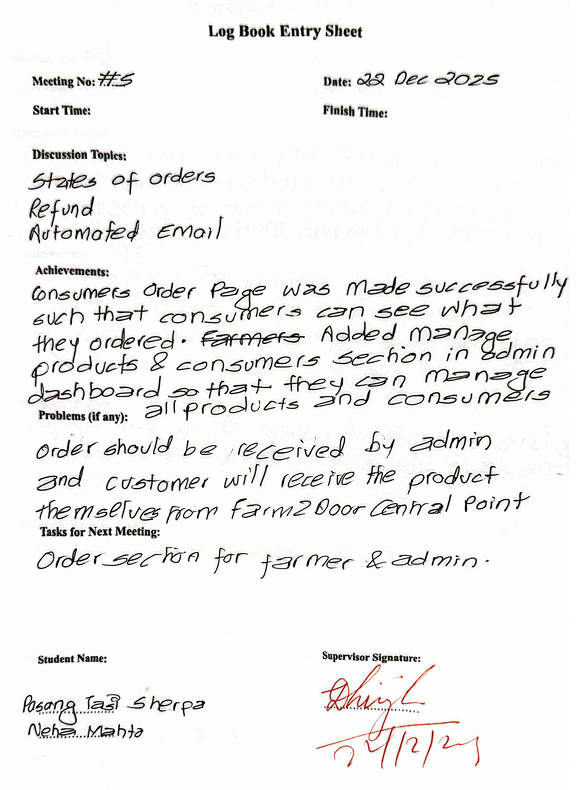 Log Book Entry Sheet
Meeting No: #5 Date: 22 Dec 2025
Start Time: Finish Time:
Discussion Topics:
States of orders
Refund
Automated Email
Achievements:
Consumers Order Page was made successfully
such that consumers can see what
they ordered. Farmers Added manage
products & consumers section in admin
dashboard so that they can manage
all products and consumers
Problems (if any):
Order should be received by admin
and customer will receive the product
themselves from Farm2Door Central Point
Tasks for Next Meeting:
Order section for farmer & admin.
Student Name: Supervisor Signature:
Pasang Tasi Sherpa
Neha Mahta